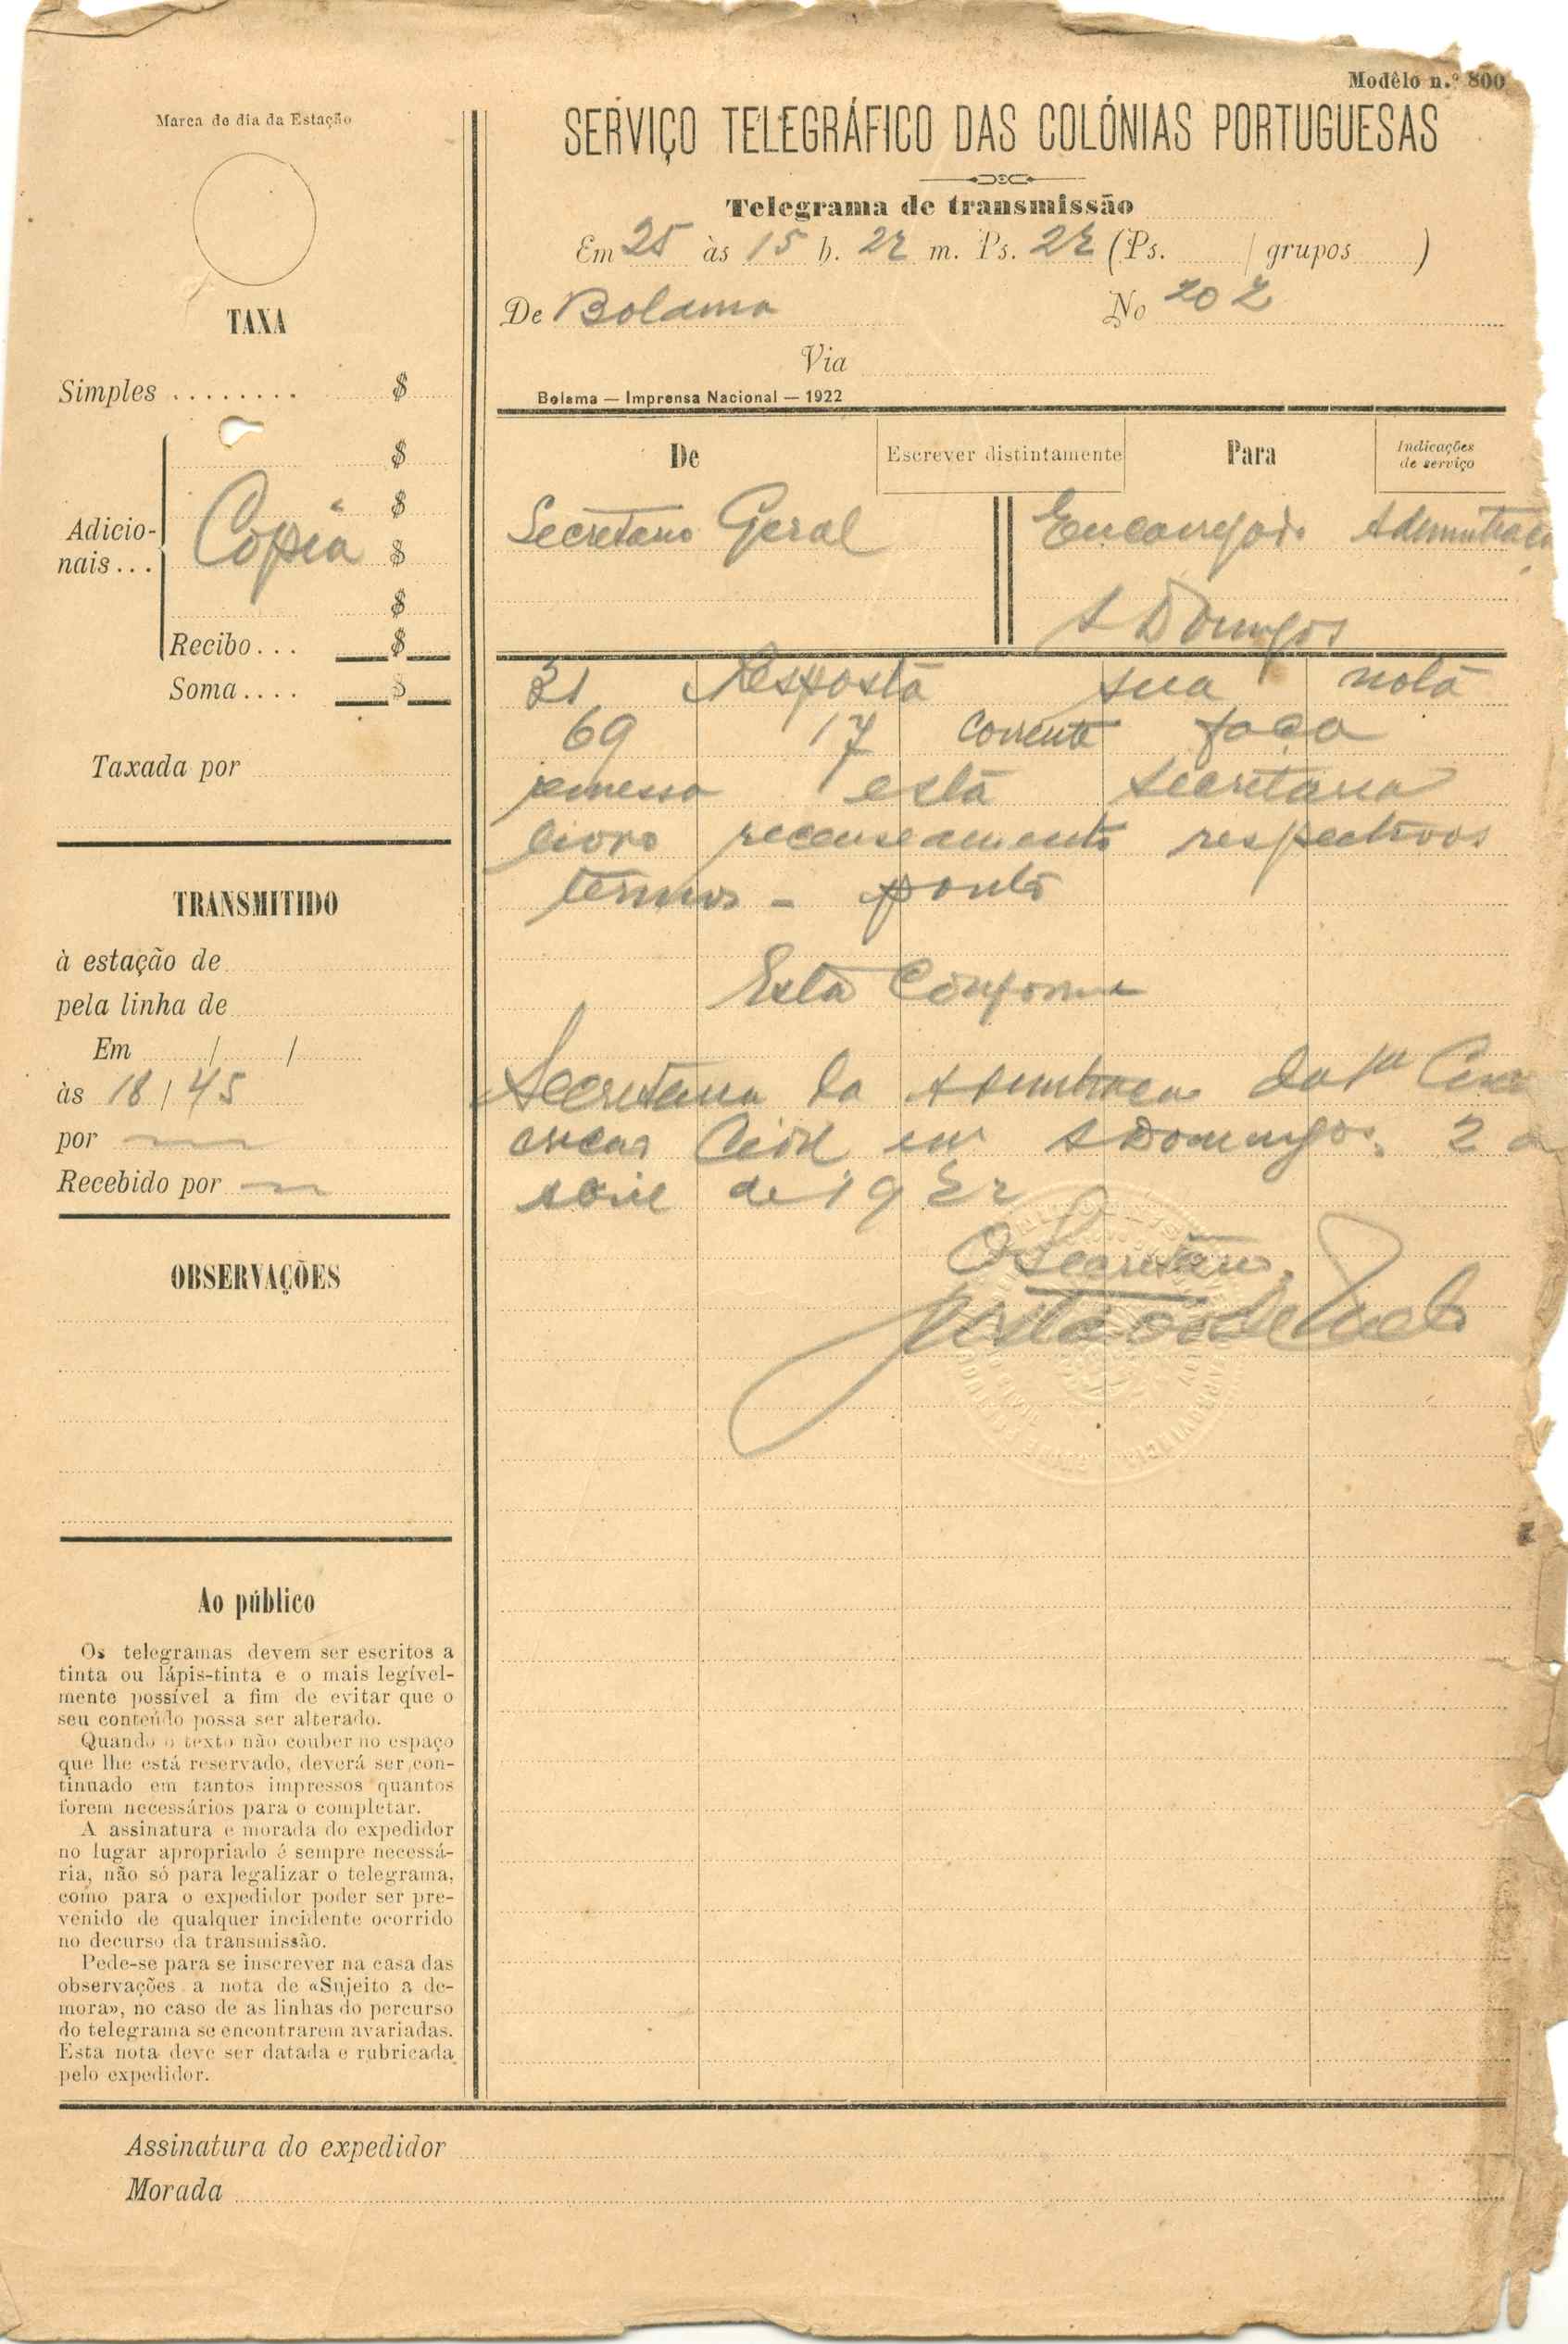 Modêlo n.º 800
Marca do dia da Estação
SERVIÇO TELEGRÁFICO DAS COLÓNIAS PORTUGUESAS
Telegrama de transmissão
Em 25 às 15 h. 22 m. Ps. 22 (Ps. / grupos )
De Bolama No 202
Via
Bolama — Imprensa Nacional — 1922
TAXA
Simples ........ $
$
$
Adicio-
nais... $
Copia
$
Recibo... $
Soma.... $
Taxada por
De Escrever distintamente Para Indicações
de serviço
Secretario Geral Encarregado
S Domingos
31 Resposta sua nota
69 17 corrente faça
remessa esta secretaria
livro recenseamento respectivos
termos - ponto
Está Conforme
Secretaria da da
Civil em S Domingos, 2
abril de 19
O Secretario,
TRANSMITIDO
à estação de
pela linha de
Em / /
às 18 / 45
por
Recebido por
OBSERVAÇÕES
Ao público
Os telegramas devem ser escritos a
tinta ou lápis-tinta e o mais legível-
mente possível a fim de evitar que o
seu conteúdo possa ser alterado.
Quando o texto não couber no espaço
que lhe está reservado, deverá ser con-
tinuado em tantos impressos quantos
forem necessários para o completar.
A assinatura e morada do expedidor
no lugar apropriado é sempre necessá-
ria, não só para legalizar o telegrama,
como para o expedidor poder ser pre-
venido de qualquer incidente ocorrido
no decurso da transmissão.
Pede-se para se inscrever na casa das
observações a nota de «Sujeito a de-
mora», no caso de as linhas do percurso
do telegrama se encontrarem avariadas.
Esta nota deve ser datada e rubricada
pelo expedidor.
Assinatura do expedidor
Morada